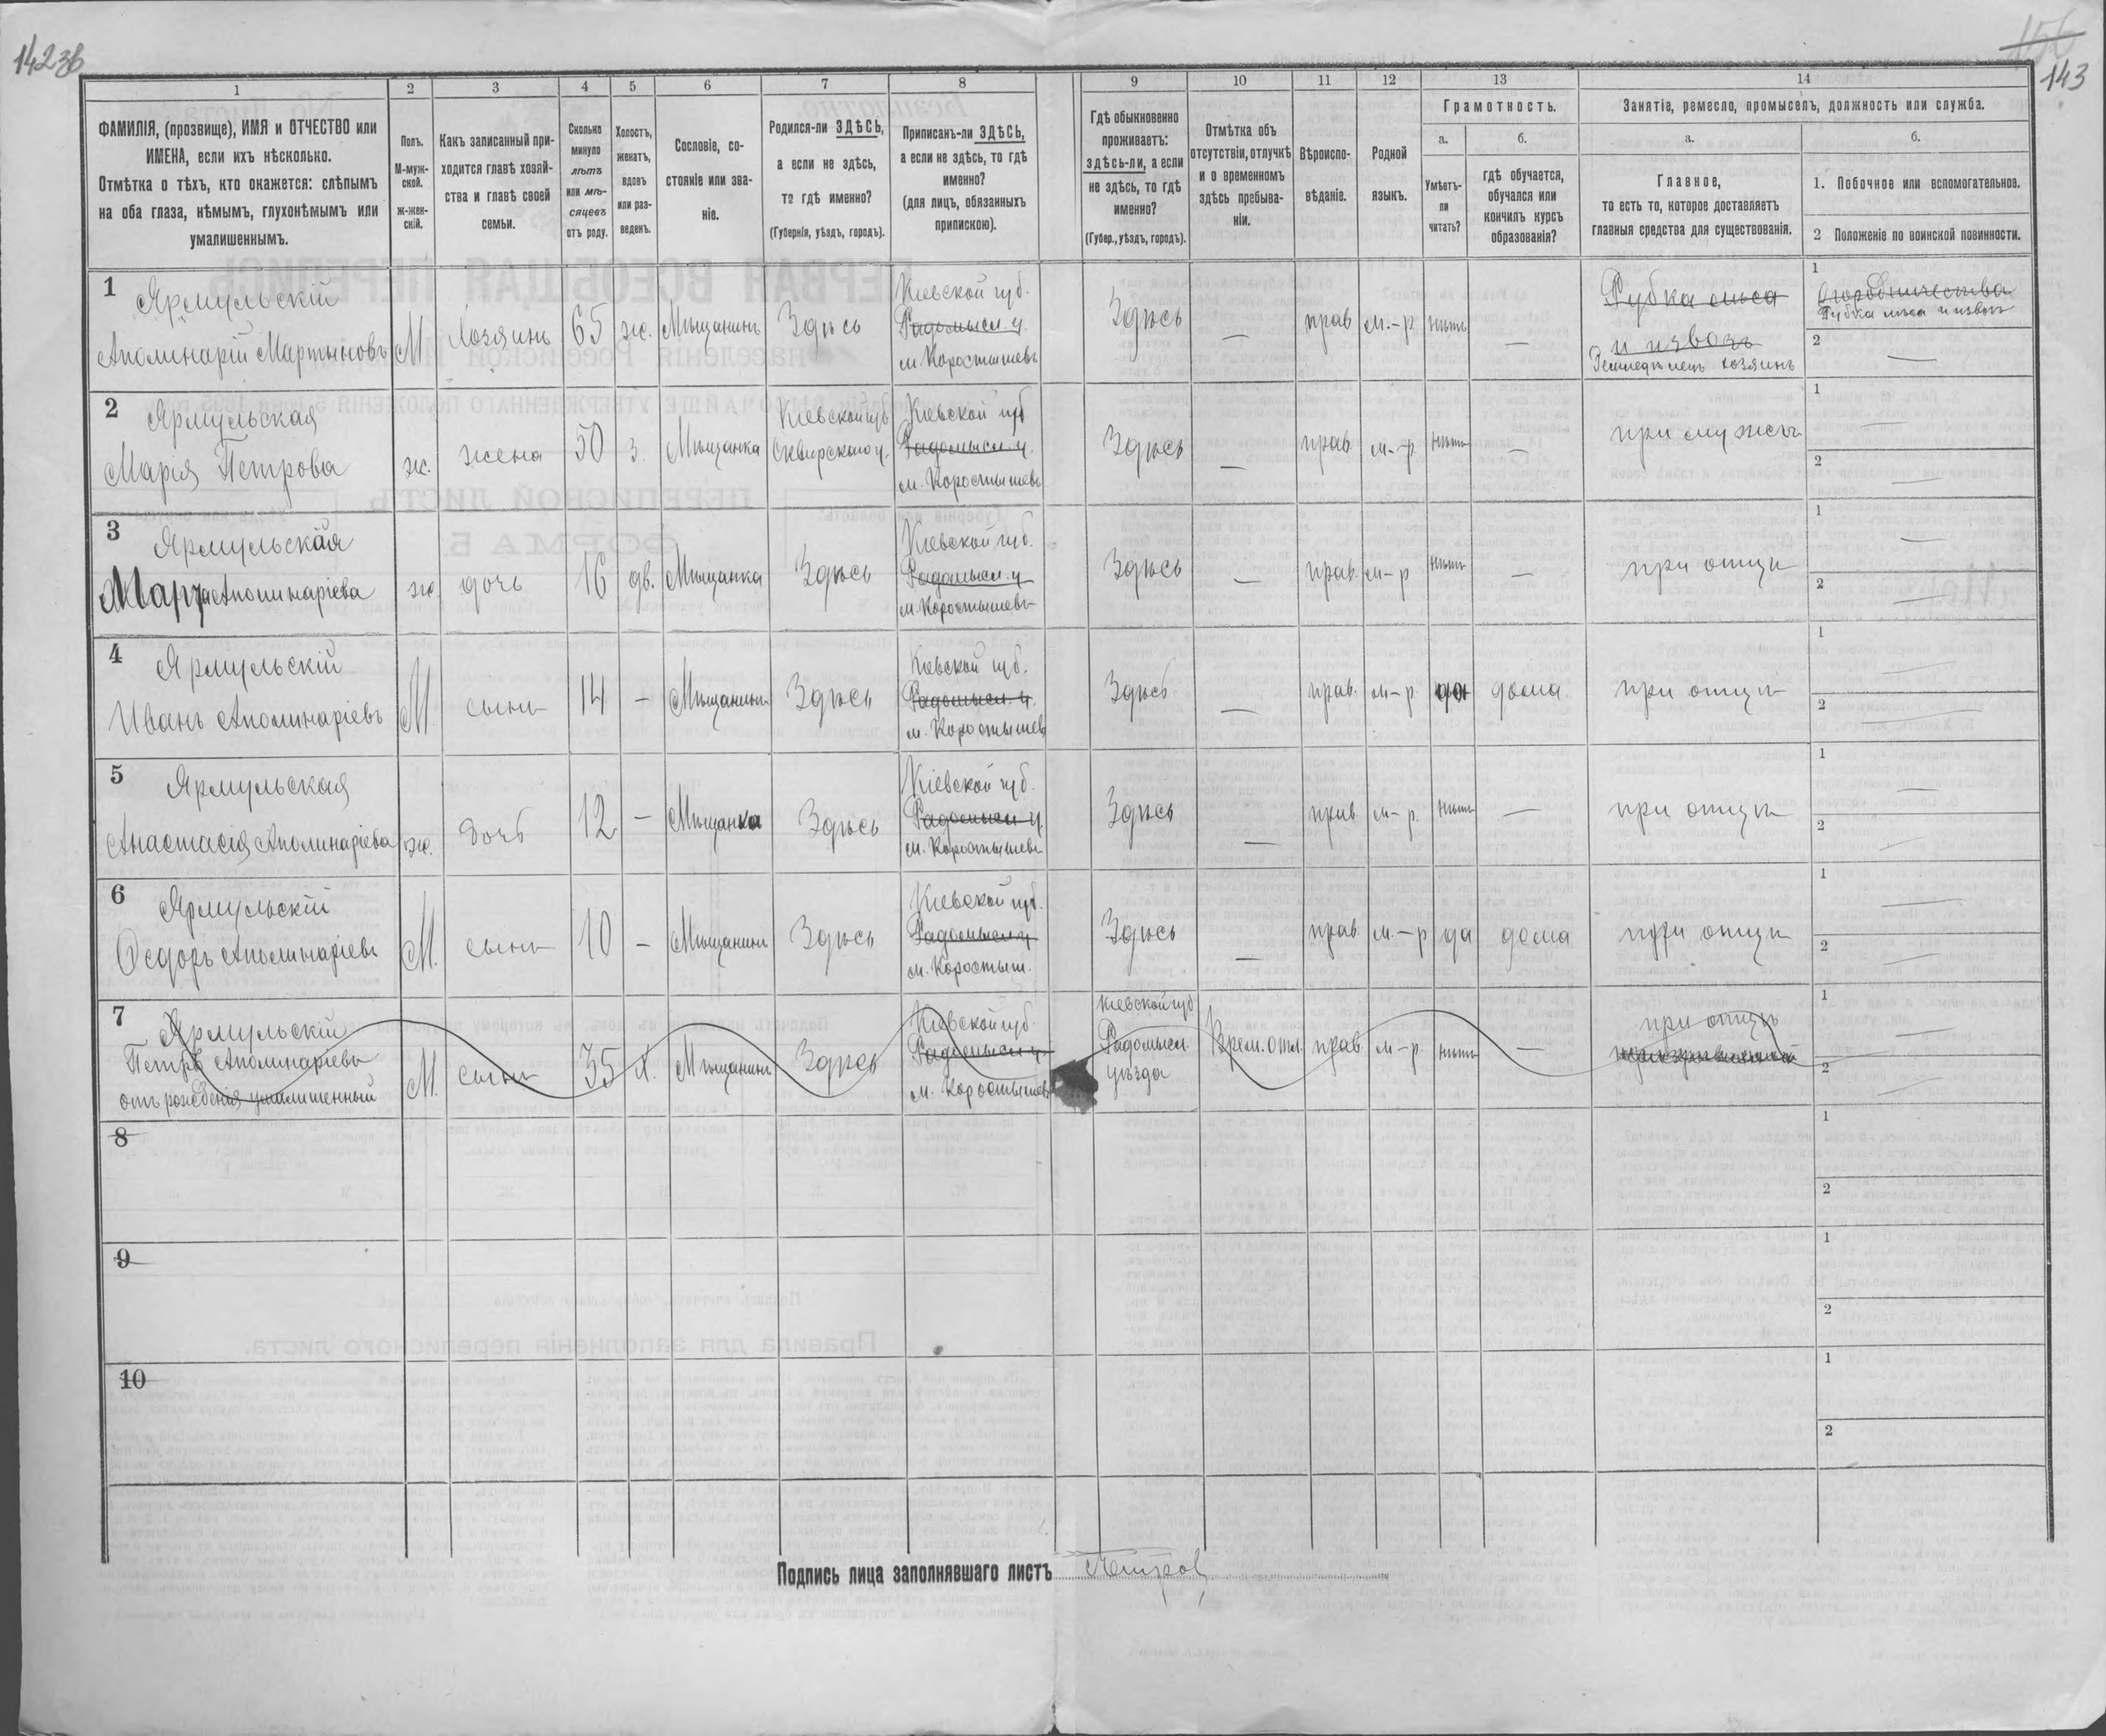 142 зв
156
143
1
2
3
4
5
6
7
8
9
10
11
12
13
14
ФАМИЛІЯ, (прозвище), ИМЯ и ОТЧЕСТВО или
ИМЕНА, если ихъ нѣсколько.
Отмѣтка о тѣхъ, кто окажется: слѣпымъ
на оба глаза, нѣмымъ, глухонѣмымъ или
умалишеннымъ.
Полъ.
М-муж-
ской.
ж-жен-
скій.
Какъ записанный при-
ходится главѣ хозяй-
ства и главѣ своей
семьи.
Сколько
минуло
лѣтъ
или мѣ-
сяцевъ
отъ роду.
Холостъ,
женатъ,
вдовъ
или раз-
веденъ.
Сословіе, со-
стояніе или зва-
ніе.
Родился-ли ЗДѢСЬ,
а если не здѣсь,
то гдѣ именно?
(Губернія, уѣздъ, городъ).
Приписанъ-ли ЗДѢСЬ,
а если не здѣсь, то гдѣ
именно?
(для лицъ, обязанныхъ
припискою).
Гдѣ обыкновенно
проживаетъ:
здѣсь-ли, а если
не здѣсь, то гдѣ
именно?
(Губер., уѣздъ, городъ).
Отмѣтка объ
отсутствіи, отлучкѣ
и о временномъ
здѣсь пребыва-
ніи.
Вѣроиспо-
вѣданіе.
Родной
языкъ.
Грамотность.
а.
Умѣетъ-
ли
читать?
б.
гдѣ обучается,
обучался или
кончилъ курсъ
образованія?
Занятіе, ремесло, промыселъ, должность или служба.
а.
Главное,
то есть то, которое доставляетъ
главныя средства для существованія.
б.
1. Побочное или вспомогательное.
2 Положеніе по воинской повинности.
1
Ярмульскій
Аполинарій Мартыновъ
М
Хозяинъ
65
ж.
Мѣщанинъ
Здѣсь
Кіевской губ.
Радомысл. у.
м. Коростышевъ
Здѣсь
—
прав
м.-р
нѣтъ
—
Рубка лѣса
и извозъ
Земледѣлецъ хозяинъ
1
Огородничества
Рубка лѣса и извозъ
2
—
2
Ярмульская
Марія Петрова
ж.
жена
50
з.
Мѣщанка
Кіевской губ
Сквирского у.
Кіевской губ
Радомысл. у.
м. Коростышевъ
Здѣсь
—
прав.
м.-р
нѣтъ
—
при мужѣ
1
—
2
—
3
Ярмульская
Аполинаріева
ж.
дочь
16
дв.
Мѣщанка
Здѣсь
Кіевской губ.
Радомысл. у
м. Коростышевъ
Здѣсь
—
прав.
м-р
нѣтъ
—
при отцѣ
1
—
2
—
4
Ярмульскій
Иванъ Аполинаріевъ
М.
сынъ
14
-
Мѣщанинъ
Здѣсь
Кіевской губ.
Радомысл. у.
м. Коростышев
Здѣсь
—
прав.
м-р.
да
дома
при отцѣ
1
—
2
—
5
Ярмульская
Анастасія Аполинаріева
ж.
дочь
12
-
Мѣщанка
Здѣсь
Кіевской губ.
Радомысл у.
м. Коростышевъ
Здѣсь
—
прав
м-р.
нѣтъ
—
при отцѣ
1
—
2
—
6
Ярмульскій
Ѳедоръ Аполинаріевъ
М.
сынъ
10
-
Мѣщанинъ
Здѣсь
Кіевской губ.
Радомысл у
м. Коростыш.
Здѣсь
—
прав
м.-р
да
дома
при отцѣ
1
—
2
—
7
Ярмульскій
Петръ Аполинаріевъ
отъ рожденія умалишенный
М.
сынъ
35
х.
Мѣщанинъ
Здѣсь
Кіевской губ.
Радомысл у.
м. Коростышевъ
Кіевской губ
Радомысл.
уѣзда
Врем. отл.
прав
м-р.
нѣтъ
—
при отцѣ
1
—
2
—
8
1
2
9
1
2
10
1
2
Подпись лица заполнявшаго листъ